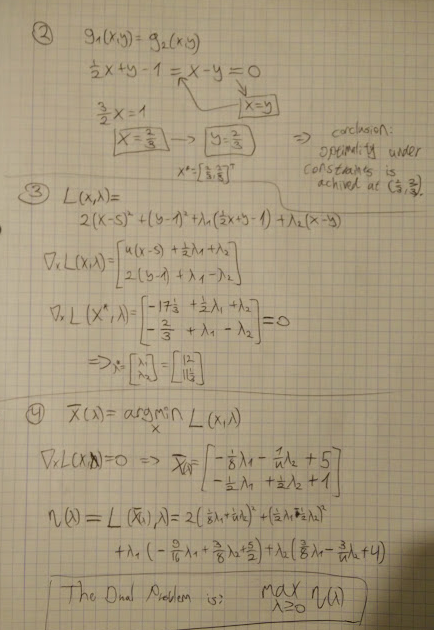 ② g₁(x,y) = g₂(x,y)
½x+y-1 = x-y = 0
x=y
3/2 x = 1
x = 2/3 → y = 2/3
⇒ conclusion:
optimality under
constraines is
achived at (2/3, 2/3).
x* = [2/3, 2/3]ᵀ
③ L(x,λ) =
2(x-5)² + (y-1)² + λ₁(½x+y-1) + λ₂(x-y)
∇ₓL(x,λ) = [4(x-5) + ½λ₁ + λ₂
2(y-1) + λ₁ - λ₂]
∇ₓL(x*,λ) = [-17⅓ + ½λ₁ + λ₂
-2/3 + λ₁ - λ₂] = 0
⇒ λ* = [λ₁
λ₂] = [12
11⅓]
④ x̄(λ) = argmin L(x,λ)
x
∇ₓL(x,λ) = 0 ⇒ x̄(λ) = [-⅛λ₁ - ¼λ₂ + 5
-½λ₁ + ½λ₂ + 1]
η(λ) = L(x̄(λ),λ) = 2(⅛λ₁ + ¼λ₂)² + (½λ₁ - ½λ₂)²
+ λ₁(-9/16 λ₁ + 3/8 λ₂ + 5/2) + λ₂(3/8 λ₁ - 3/4 λ₂ + 4)
The Dual Problem is: max η(λ)
λ≥0